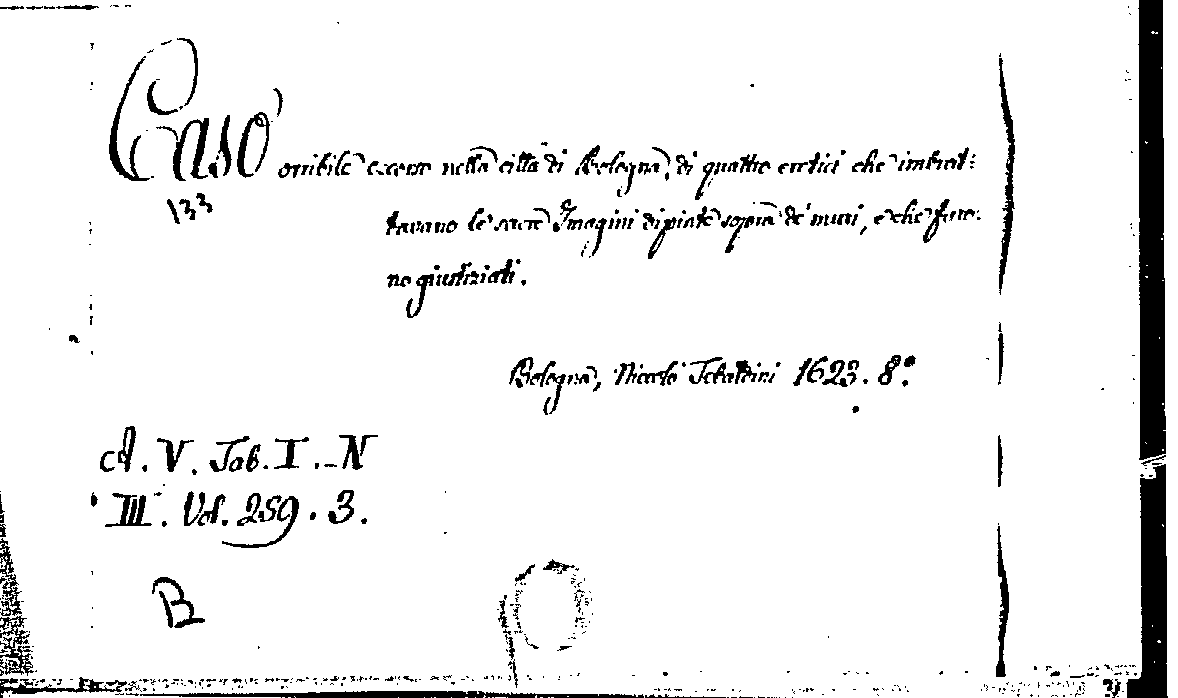 Caso orribile occorso nella città di Bologna, di quattro eretici che imbrat:
133
tavano le sacre Imagini dipinte sopra de' muri, e che furo:
no giustiziati.
Bologna, Nicolò Tebaldini 1623. 8.º
A. V. Tab. I. N
III. Vol. 259. 3.
B